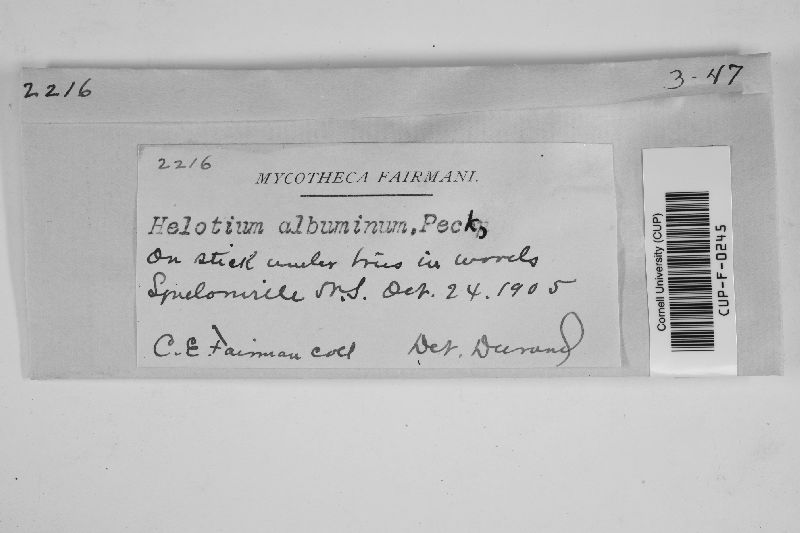 2216
3-47
2216
MYCOTHECA FAIRMANI.
Helotium albuminum, Peck,
On stick under trees in woods
Lyndonville N.Y. Oct. 24. 1905
C. E. Fairman coll
Det. Durand
Cornell University (CUP)
CUP-F-0245